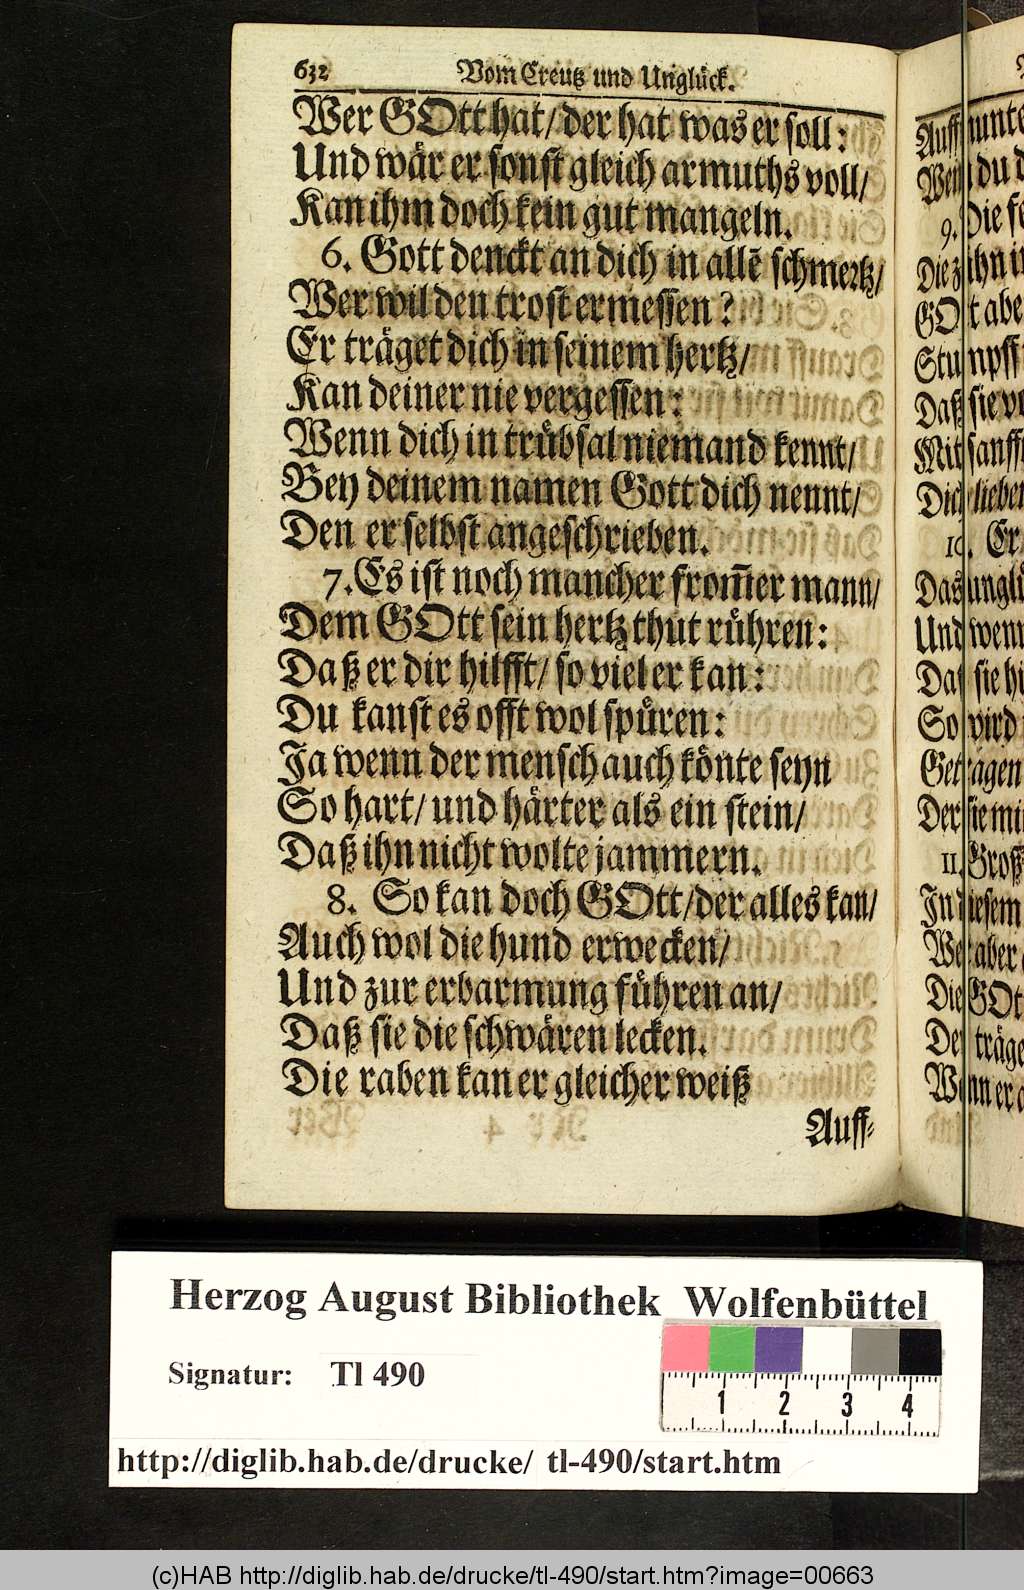 632 Vom Creutz und Unglück.
Wer GOtt hat/ der hat was er soll:
Und wär er sonst gleich armuths voll/
Kan ihm doch kein gut mangeln.
6. Gott denckt an dich in allẽ schmertz/
Wer wil den trost ermessen?
Er träget dich in seinem hertz/
Kan deiner nie vergessen:
Wenn dich in trübsal niemand kennt/
Bey deinem namen Gott dich nennt/
Den er selbst angeschrieben.
7. Es ist noch mancher from̃er mann/
Dem GOtt sein hertz thut rühren:
Daß er dir hilfft/ so viel er kan:
Du kanst es offt wol spüren:
Ja wenn der mensch auch könte seyn
So hart/ und härter als ein stein/
Daß ihn nicht wolte jammern.
8. So kan doch GOtt/ der alles kan/
Auch wol die hund erwecken/
Und zur erbarmung führen an/
Daß sie die schwären lecken.
Die raben kan er gleicher weiß
Auff-
Wen du
9. Die
Die ihn
GOtt abe
Daß sie
Mit
10. Er
Das
Und wenn
Daß sie
So wird
Getragen
Der sie
11. Groß
In diesem
Wer aber
Die GOt
Der träge
Wenn er
Herzog August Bibliothek Wolfenbüttel
Signatur: Tl 490
1 2 3 4
http://diglib.hab.de/drucke/ tl-490/start.htm
(c)HAB http://diglib.hab.de/drucke/tl-490/start.htm?image=00663